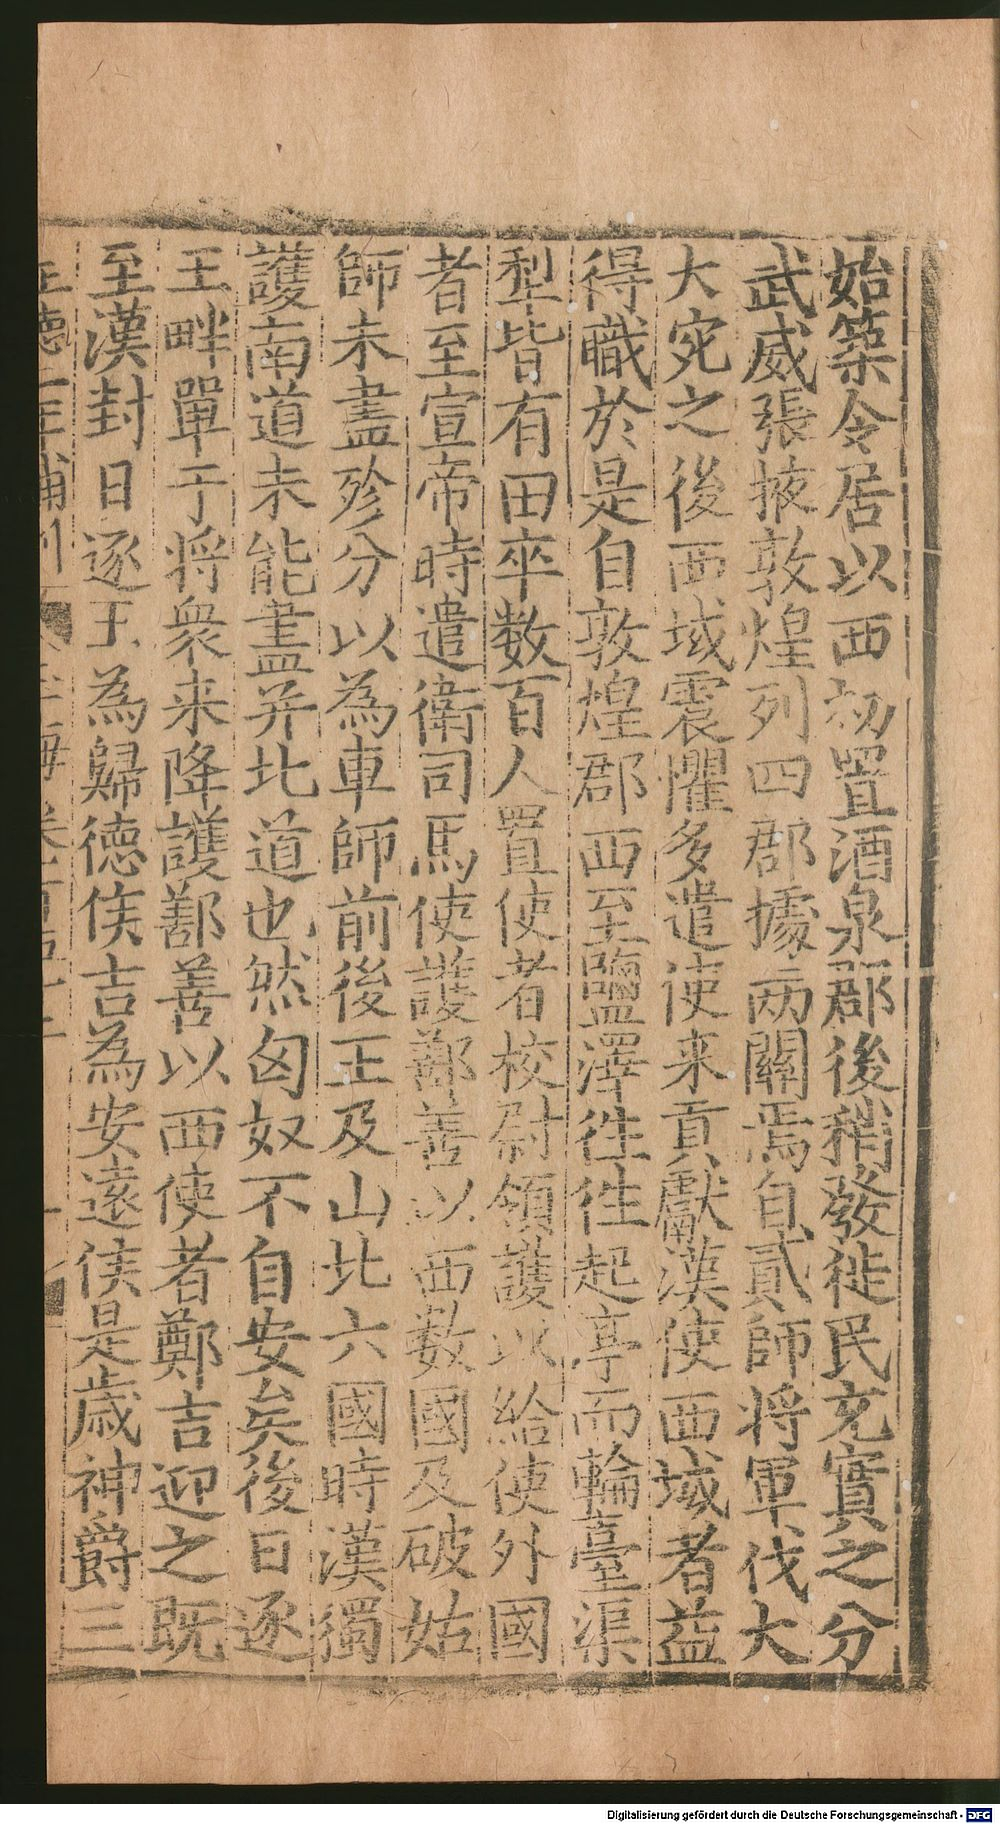 始築令居以西初置酒泉郡後稍發徙民充實之分
武威張掖敦煌列四郡據兩關焉自貳師將軍伐大
大宛之後西域震懼多遣使来貢獻漢使西域者益
得職於是自敦煌郡西至鹽澤徃徃起亭而輪臺渠
犁皆有田卒數百人置使者校尉領護以給使外國
者至宣帝時遣衛司馬使護鄯善以西數國及破姑
師未盡殄分以為車師前後王及山北六國時漢獨
護南道未能盡并北道也然匈奴不自安矣後日逐
王畔單于将衆来降護鄯善以西使者鄭吉迎之既
至漢封日逐王為歸德侯吉為安遠侯是歳神爵三
正德二年補刊
Digitalisierung gefördert durch die Deutsche Forschungsgemeinschaft - DFG